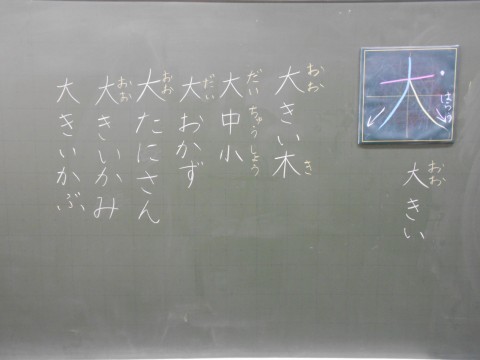 大
はらう
大きい
おお
大きい木
おお き
大中小
だいちゅうしょう
大おかず
だい
大たにさん
おお
大きいかみ
おお
大きいかぶ